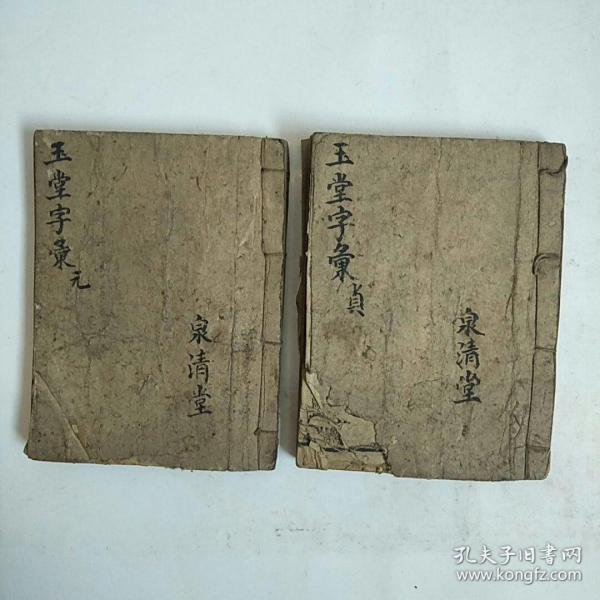 玉堂字彙元
泉清堂
玉堂字彙貞
泉清堂
孔夫子旧书网
www.kongfz.com